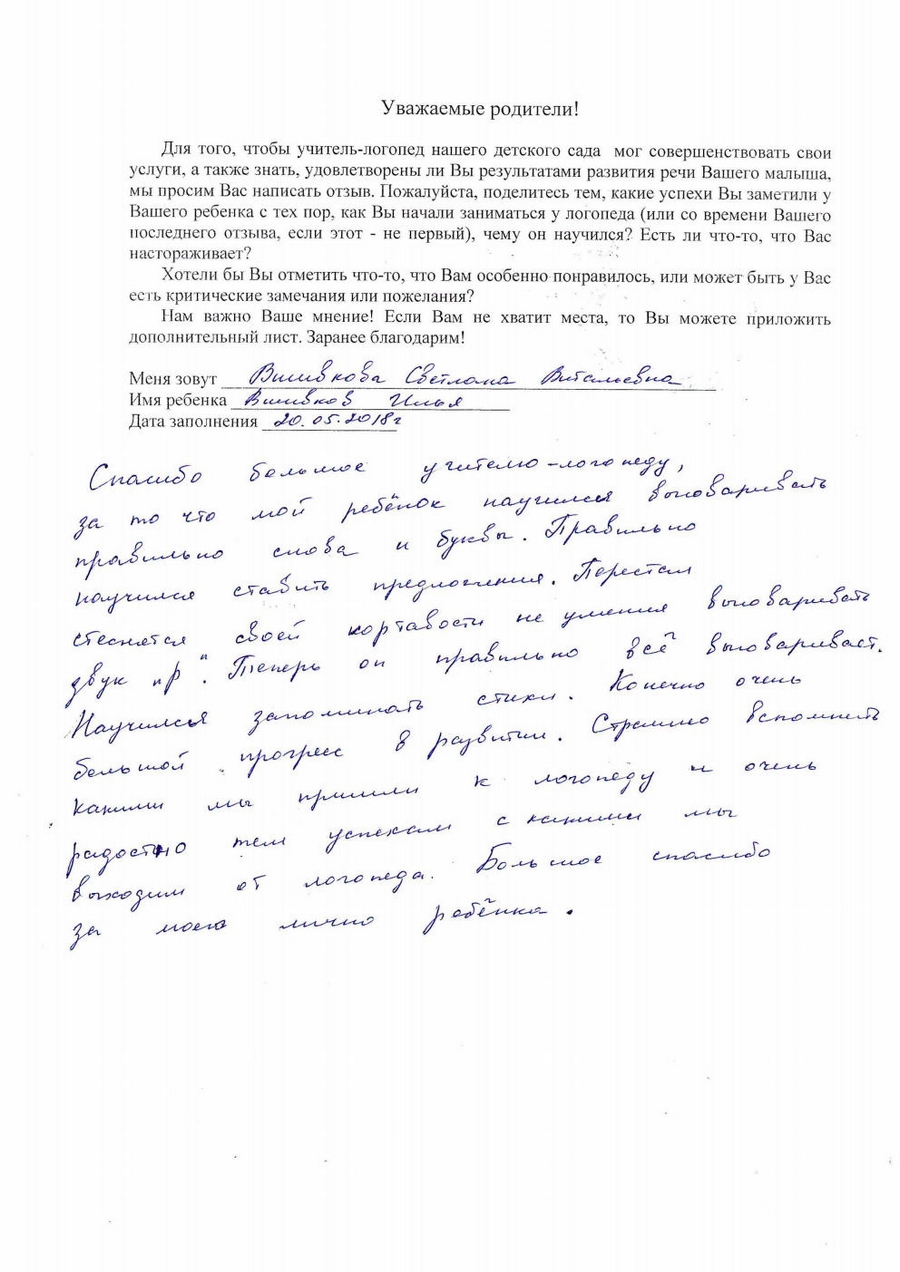 Уважаемые родители!
Для того, чтобы учитель-логопед нашего детского сада мог совершенствовать свои
услуги, а также знать, удовлетворены ли Вы результатами развития речи Вашего малыша,
мы просим Вас написать отзыв. Пожалуйста, поделитесь тем, какие успехи Вы заметили у
Вашего ребенка с тех пор, как Вы начали заниматься у логопеда (или со времени Вашего
последнего отзыва, если этот - не первый), чему он научился? Есть ли что-то, что Вас
настораживает?
Хотели бы Вы отметить что-то, что Вам особенно понравилось, или может быть у Вас
есть критические замечания или пожелания?
Нам важно Ваше мнение! Если Вам не хватит места, то Вы можете приложить
дополнительный лист. Заранее благодарим!
Меня зовут Вшивкова Светлана Витальевна
Имя ребенка Вшивков Илья
Дата заполнения 20.05.2018г
Спасибо большое учителю-логопеду,
за то что мой ребёнок научился выговаривать
правильно слова и буквы. Правильно
научился ставить предложения. Перестал
стеснятся своей кортавости не умения выговаривать
звук "р". Теперь он правильно всё выговаривает.
Научился запоминать стихи. Конечно очень
большой прогресс в развитии. Страшно вспомнить
какими мы пришли к логопеду и очень
радостно тем успехам с какими мы
выходим от логопеда. Большое спасибо
за моего лично ребёнка.